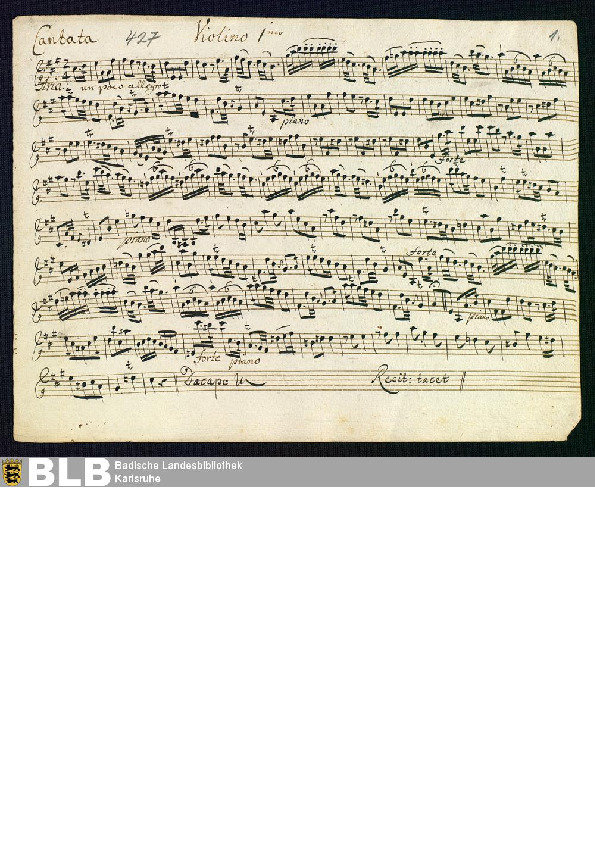 Cantata 427 Violino 1mo 1.
Aria un poco allegro
piano
forte
piano
forte
piano
forte piano
Dacapo Recit: tacet
BLB Badische Landesbibliothek
Karlsruhe